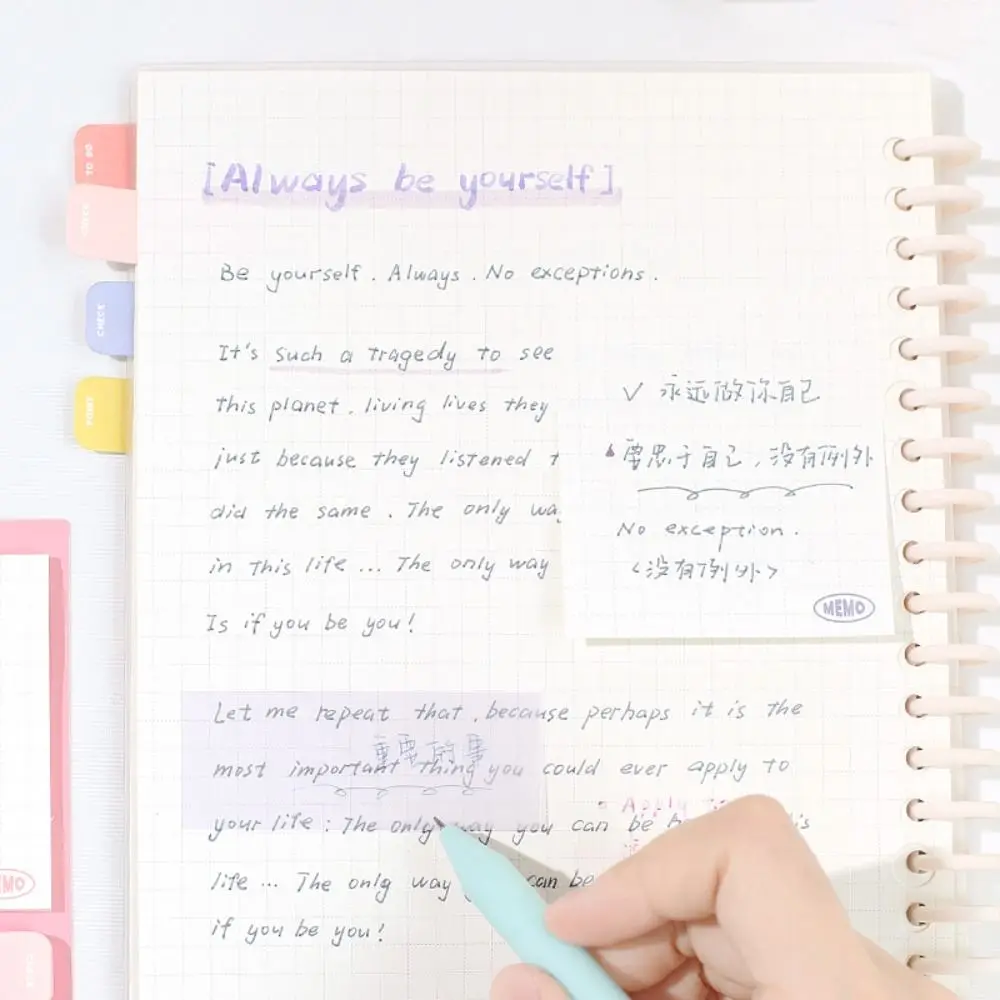 [Always be yourself]
Be yourself. Always. No exceptions.
It's such a tragedy to see
this planet, living lives they
just because they listened t
did the same. The only way
in this life ... The only way
Is if you be you!
✓ 永远做你自己
要忠于自己，没有例外
No exception.
<没有例外>
MEMO
Let me repeat that, because perhaps it is the
重要的事
most important thing you could ever apply to
Apply
your life: The only way you can be
life ... The only way can be
if you be you!
TO DO
CHECK
CHECK
POINT